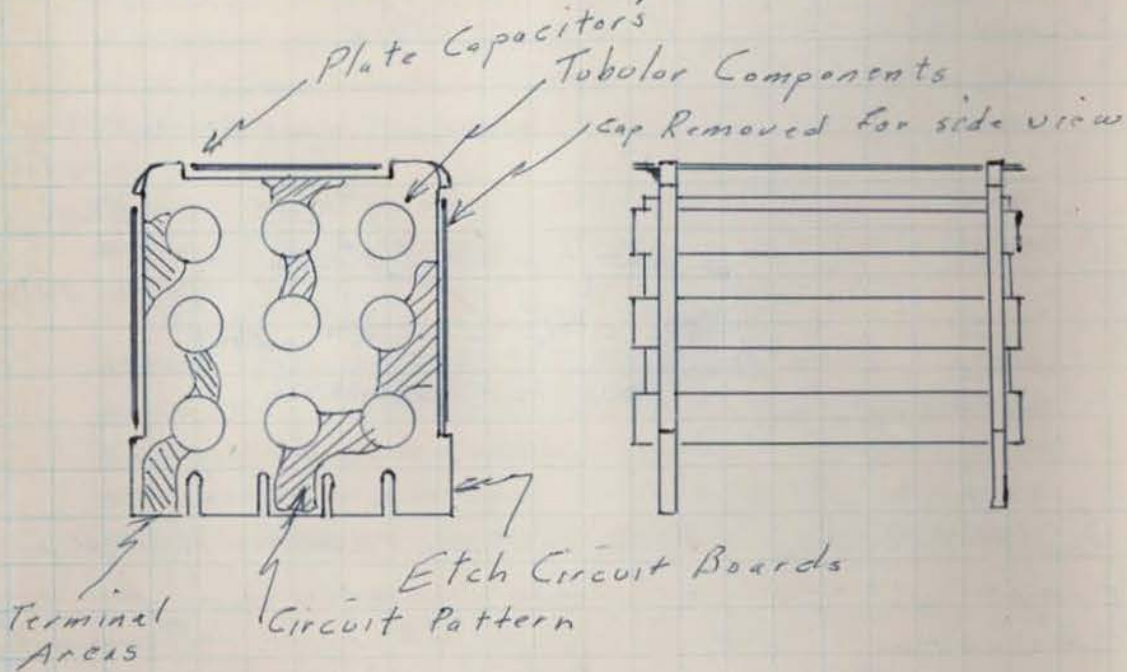 Plate Capacitors
Tubular Components
Cap Removed for side view
Etch Circuit Boards
Terminal
Areas
Circuit Pattern